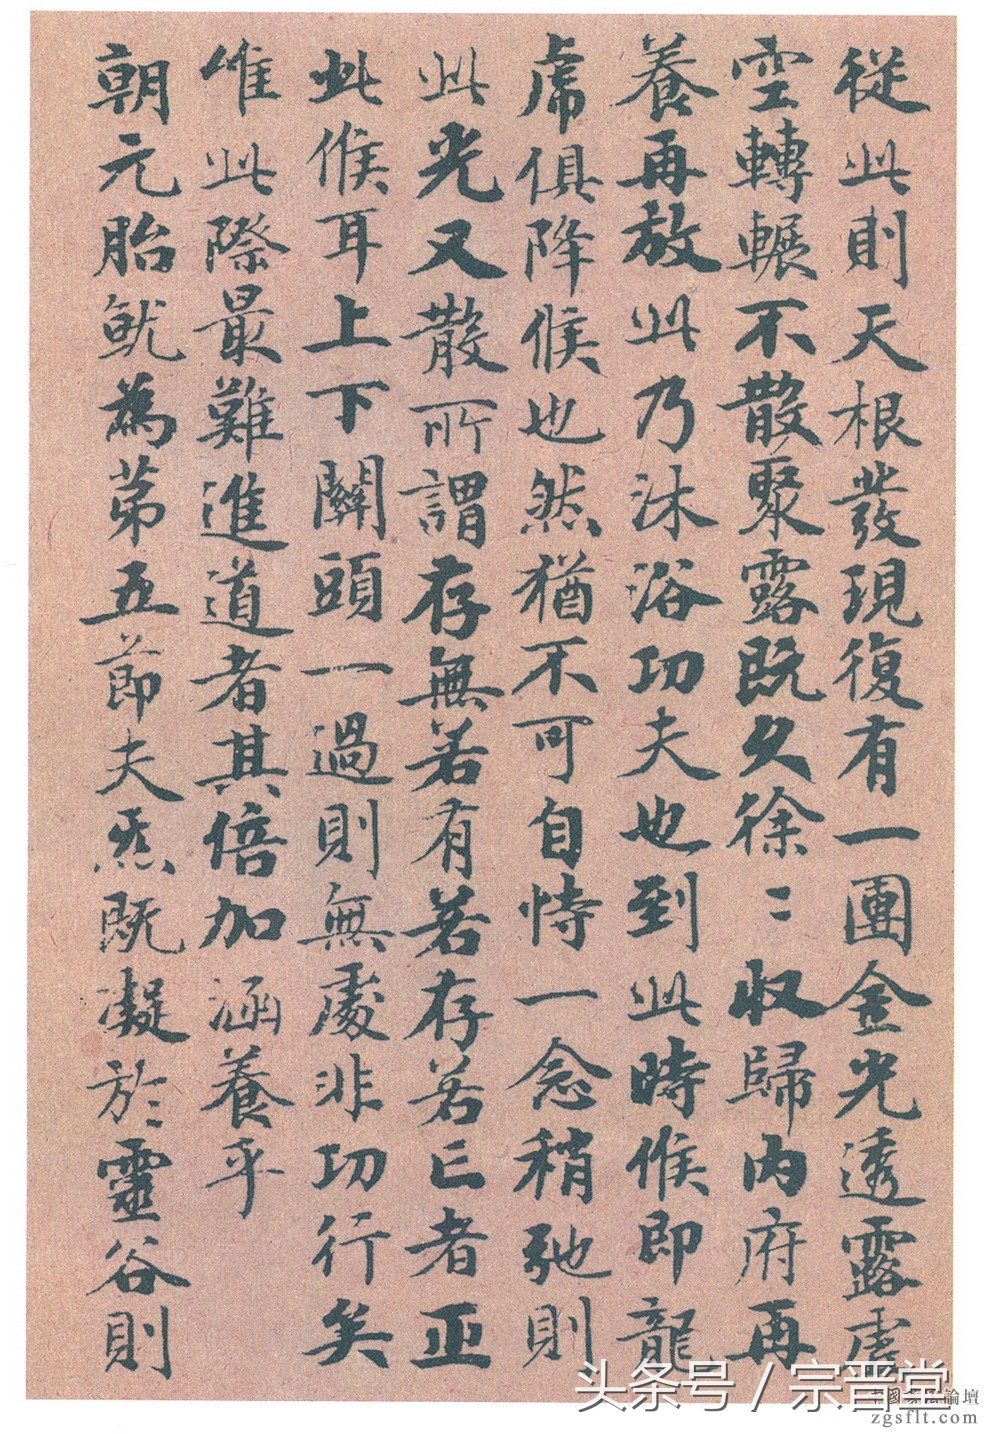 從此則天根發現復有一團金光透露虛
空轉輾不散聚露既久徐〻收歸內府再
養再放此乃沐浴功夫也到此時候即龍
虎俱降候也然猶不可自恃一念稍弛則
此光又散所謂存無若有若存若亡者正
此候耳上下關頭一過則無處非功行矣
惟此際最難進道者其倍加涵養乎
朝元胎魷為第五節夫炁既凝於〻靈谷則
头条号 / 宗晋堂
論壇
zgsflt.com